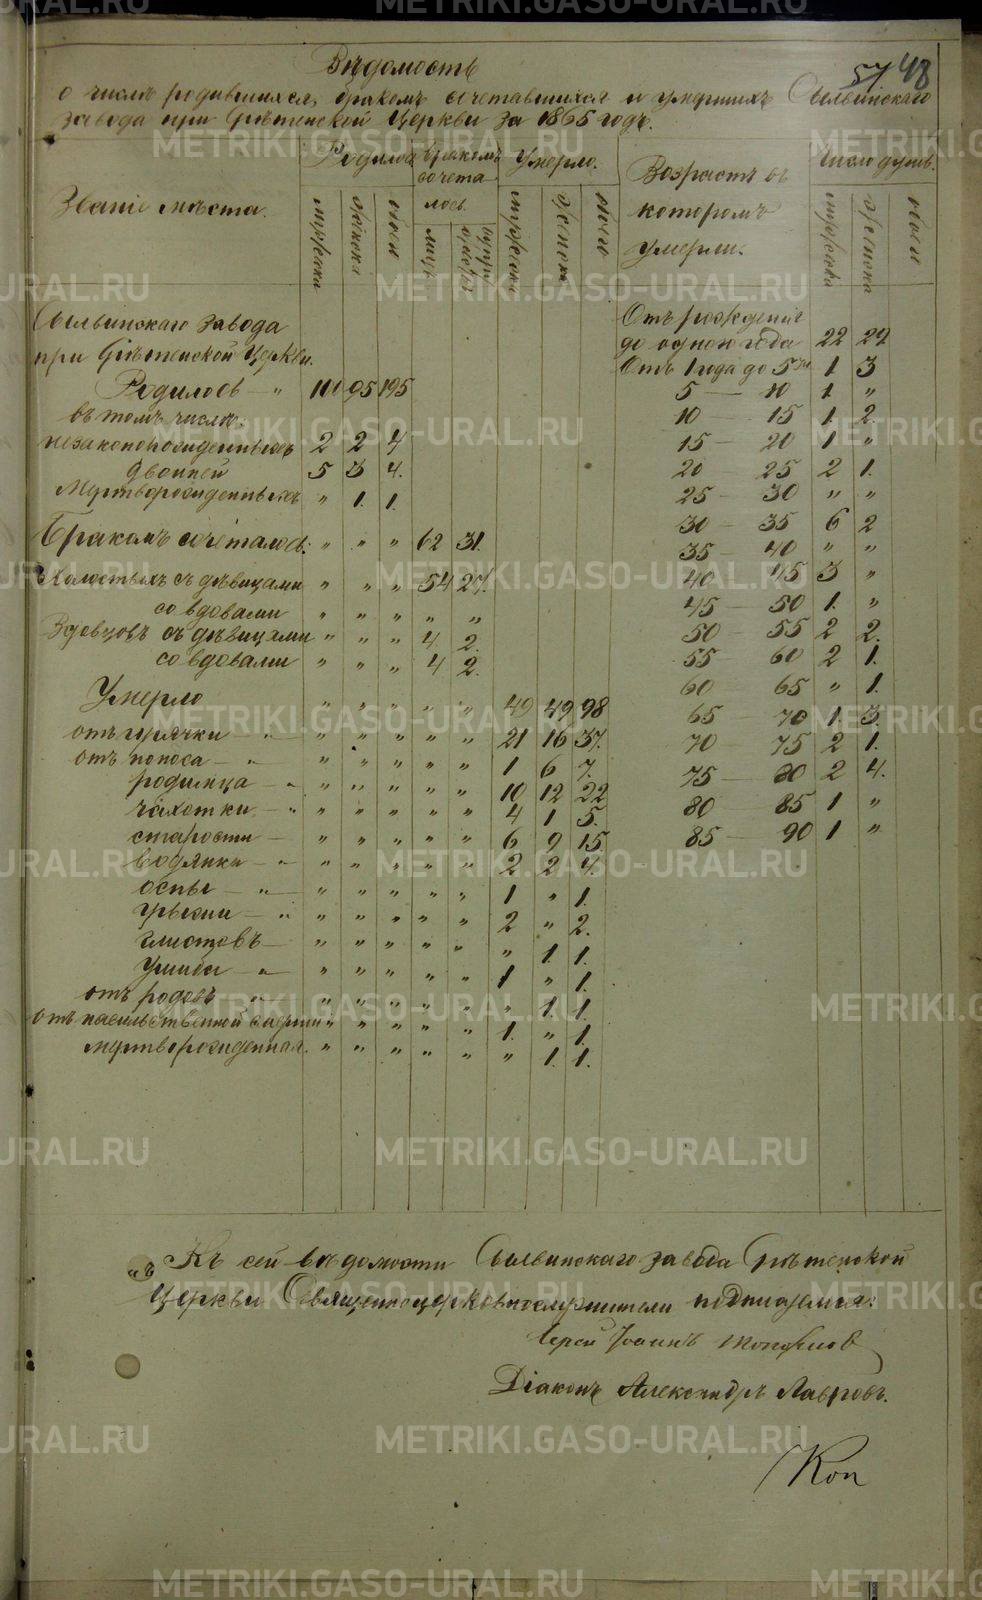 57 48
Вѣдомость
о числѣ родившихся, бракомъ сочетавшихся и умершихъ Сылвинскаго
завода при Срѣтенской Церкви за 1865 годъ.
Званіе мѣста. Родилось Бракомъ сочета лось. Умерло. Возрастъ въ которомъ умерли. Число душъ.
мужска женска обоего лицъ мужска женска обоего мужска женска обоего
Сылвинскаго завода
при Срѣтенской Церкви.
Родилось — " 100 95 195
въ томъ числѣ:
незаконорожденныхъ 2 2 4
двойней 5 3 4.
Мертворожденныхъ " 1. 1.
Бракомъ сочеталось: " " " 62 31.
Холостыхъ съ дѣвицами " " " 54 27.
со вдовами " " " " "
Вдовцовъ съ дѣвицами " " " 4 2.
со вдовами " " " 4 2.
Умерло " " " " " 49 49 98
отъ горячки " " " " " " 21 16 37.
отъ поноса — " " " " " " 1 6 7.
родимца — " " " " " " 10 12 22
чахотки — " " " " " " 4 1 5.
старости — " " " " " 6 9 15
водянки — " " " " " " 2 2 4.
оспы — " — " " " " " 1 " 1.
грыжи — " " " " " " 2 " 2.
глистовъ — " " " " " " 1. 1.
Ушиба — " " " " " " 1 " 1.
отъ родовъ " " " " " " " 1. 1.
отъ насильственной смерти " " " " " 1. " 1.
мертворожденная. " " " " " " 1. 1.
Отъ рожденія
до одного года 22 29
Отъ 1 года до 5ти 1 3
5 — 10 1 "
10 — 15 1 2.
15 — 20 1 "
20 25 2 1.
25 — 30 " "
30 — 35 6 2
35 — 40 " "
40 45 3 "
45 — 50 1. "
50 — 55 2 2.
55 60 2 1.
60 65 " 1.
65 — 70 1. 3.
70 — 75 2 1.
75 — 80 2 4.
80 85 1 "
85 — 90 1 "
Къ сей вѣдомости Сылвинскаго завода Срѣтенской
Церкви Священноцерковнослужители подписуемся:
Іерей Іоаннъ
Діаконъ Александръ Лавровъ.
METRIKI.GASO-URAL.RU